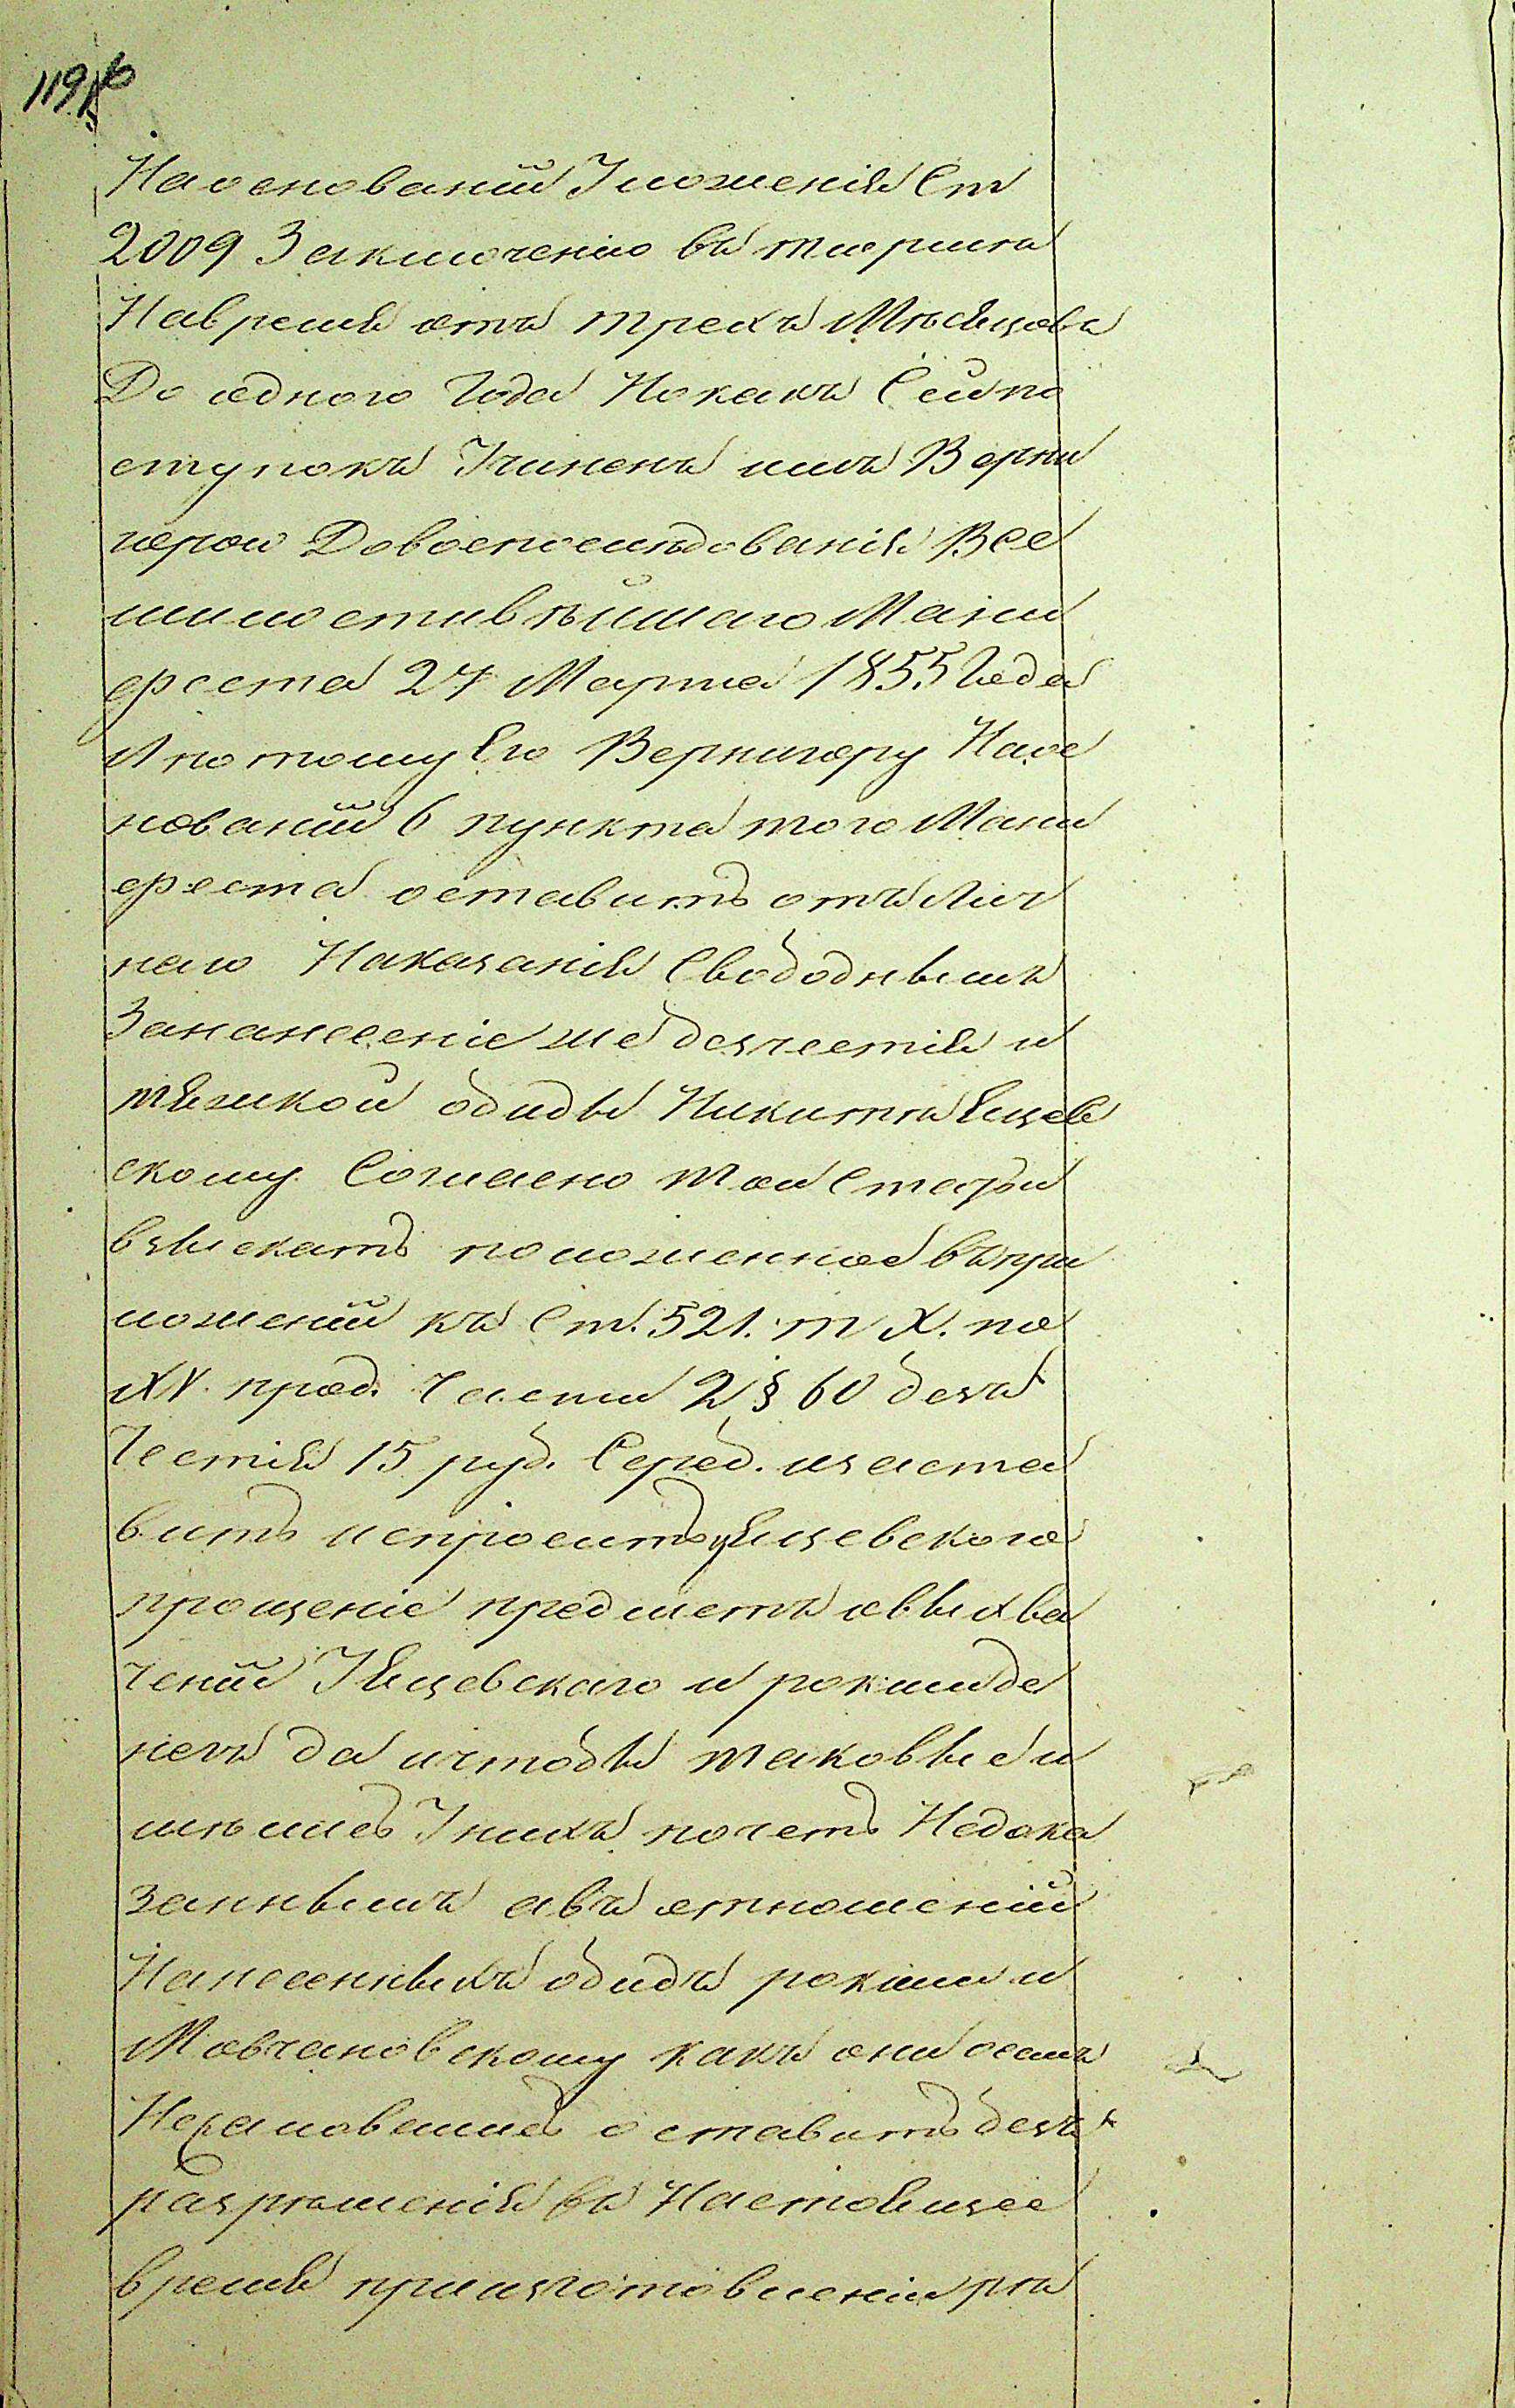 119 б
На основаніи Уложенія Ст
2009 Заключенію въ тюрмѣ
На время отъ трехъ Мѣсяцовъ
До одного Года Но какъ Сей по
ступокъ Учиненъ имъ Верни
горою До воспослѣдованія Все
милостивѣйшаго Мани
феста 27 Марта 1855 Года
И по тому Его Вернигору На ос
нованіи 6 пункта того Мани
феста оставить отъ лич
наго Наказанія Свободнымъ
За нанесеніе же безчестія и
тяжкой обиды Никитѣ Яцев
скому Согласно той Статьи
взыскать положенное въ при
ложеніи къ Ст. 521. т X. по
XV. прод. Части 2 § 60 безъ
Честія 15 руб. Сереб. и заста
вить испросить у Яцевского
прощеніе предметъ о выхва
ченіи У Яцевскаго и рокши де
негъ да и чтобы таковые и
мѣлись У нихъ почесть Недока
заннымъ а въ отношеніи
Нанесенныхъ обидъ рокши и
Мовчановскому какъ они о семъ
Не жаловались оставить безъ
разрѣшенія въ Настоящее
время при изготовленіи рѣ